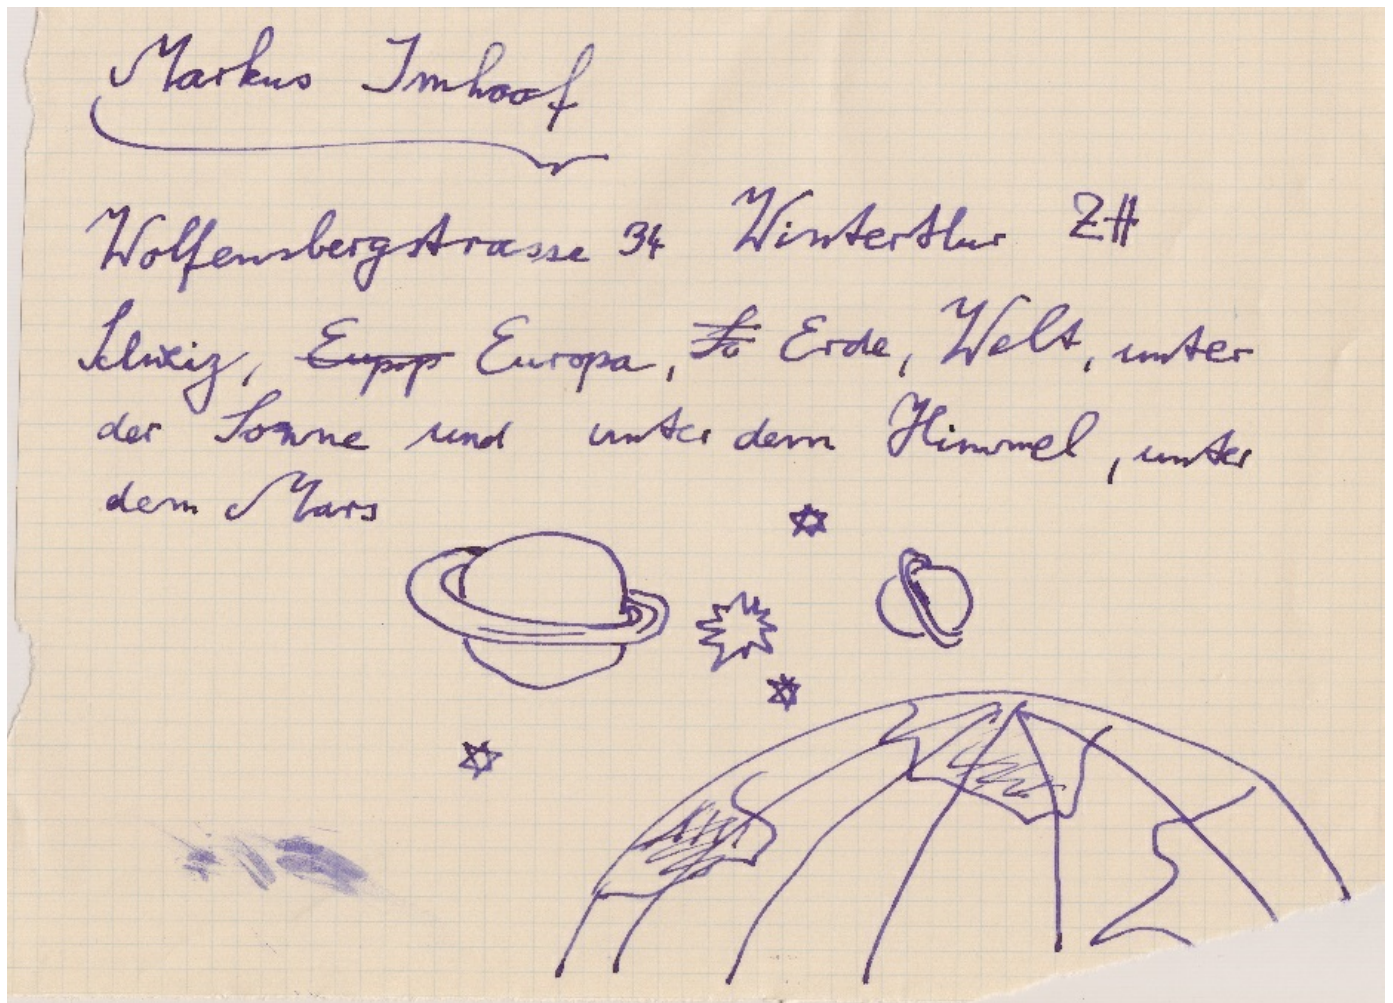 Markus Imhoof
Wolfensbergstrasse 34 Winterthur ZH
Schweiz, Eupop Europa, So Erde, Welt, unter
der Sonne und unter dem Himmel, unter
dem Mars